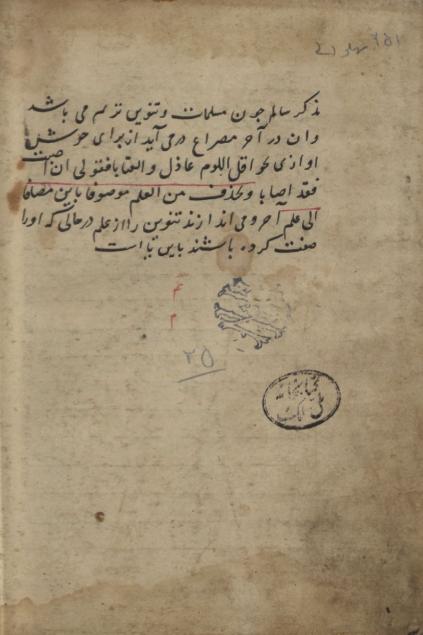 مذکر سالم چون مسلمات و تنوین ترنم می باشد
و ان در آخر مصراع درمی آید از برای خوش
اوازی نحو اقلی اللوم عاذل والعتابا فقولی ان اصبت
فقد اصابا و یحذف من العلم موصوفا باین مضافا
الی علم آخر و می اندازند تنوین را از علم در حالتی که اورا
صفت کرده باشند باین
۲۵
کتابخانه
ملی ملک